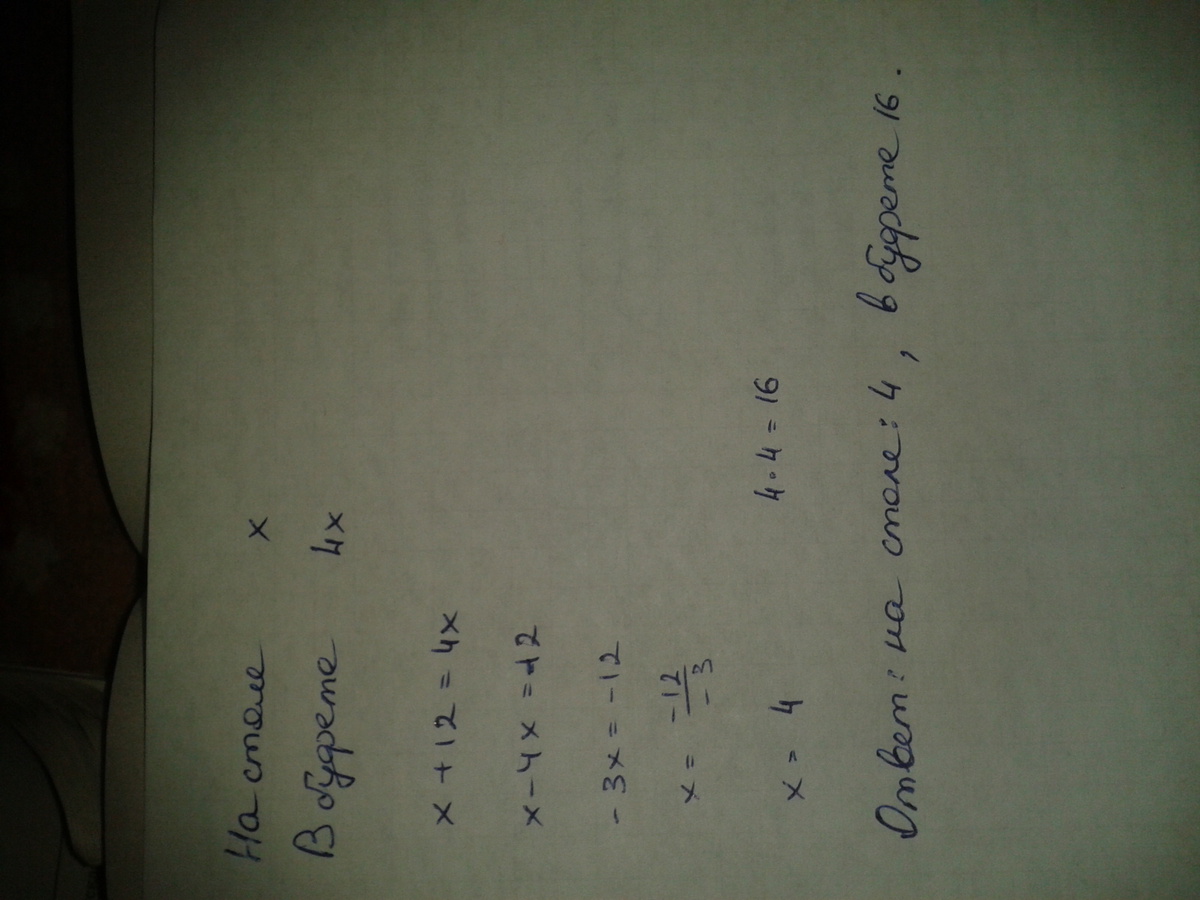 На столе x
В буфете 4x
x + 12 = 4x
x - 4x = -12
- 3x = - 12
x = -12/-3
x = 4 4 · 4 = 16
Ответ: на столе: 4, в буфете 16.